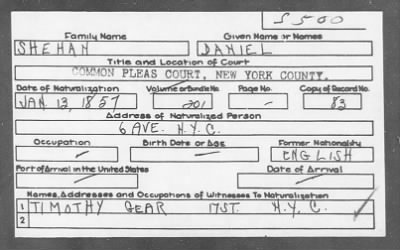 S500
Family Name Given Name or Names
SHEHAN DANIEL
Title and Location of Court
COMMON PLEAS COURT, NEW YORK COUNTY.
Date of Naturalization Volume or Bundle No. Page No. Copy of Record No.
JAN 13, 1857 201 - 83
Address of Naturalized Person
6 AVE. N.Y.C.
Occupation Birth Date or Age Former Nationality
— — ENGLISH
Port of Arrival in the United States Date of Arrival
— —
Names, Addresses and Occupations of Witnesses To Naturalization
1 TIMOTHY GEAR 17 ST. N.Y.C.
2